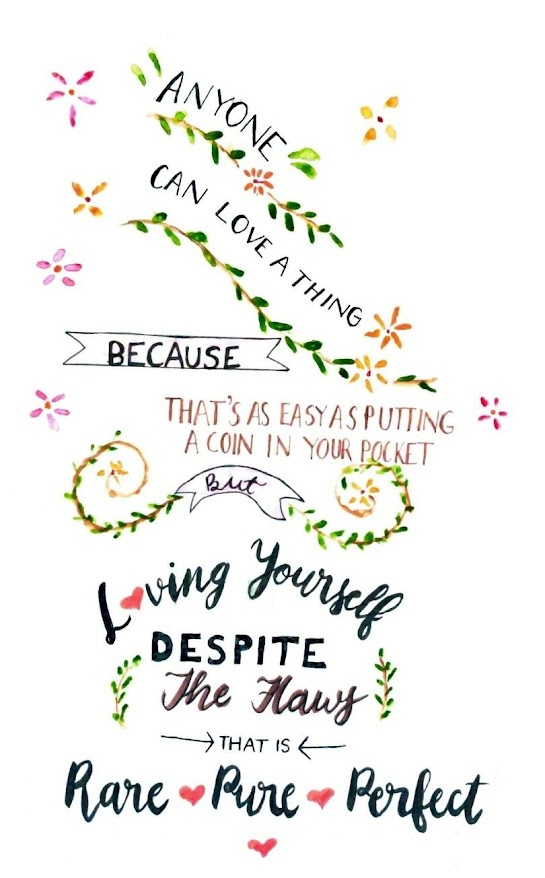 ANYONE
CAN LOVE A THING
BECAUSE
THAT'S AS EASY AS PUTTING
A COIN IN YOUR POCKET
But
Loving Yourself
DESPITE
The Flaws
THAT IS
Rare Pure Perfect